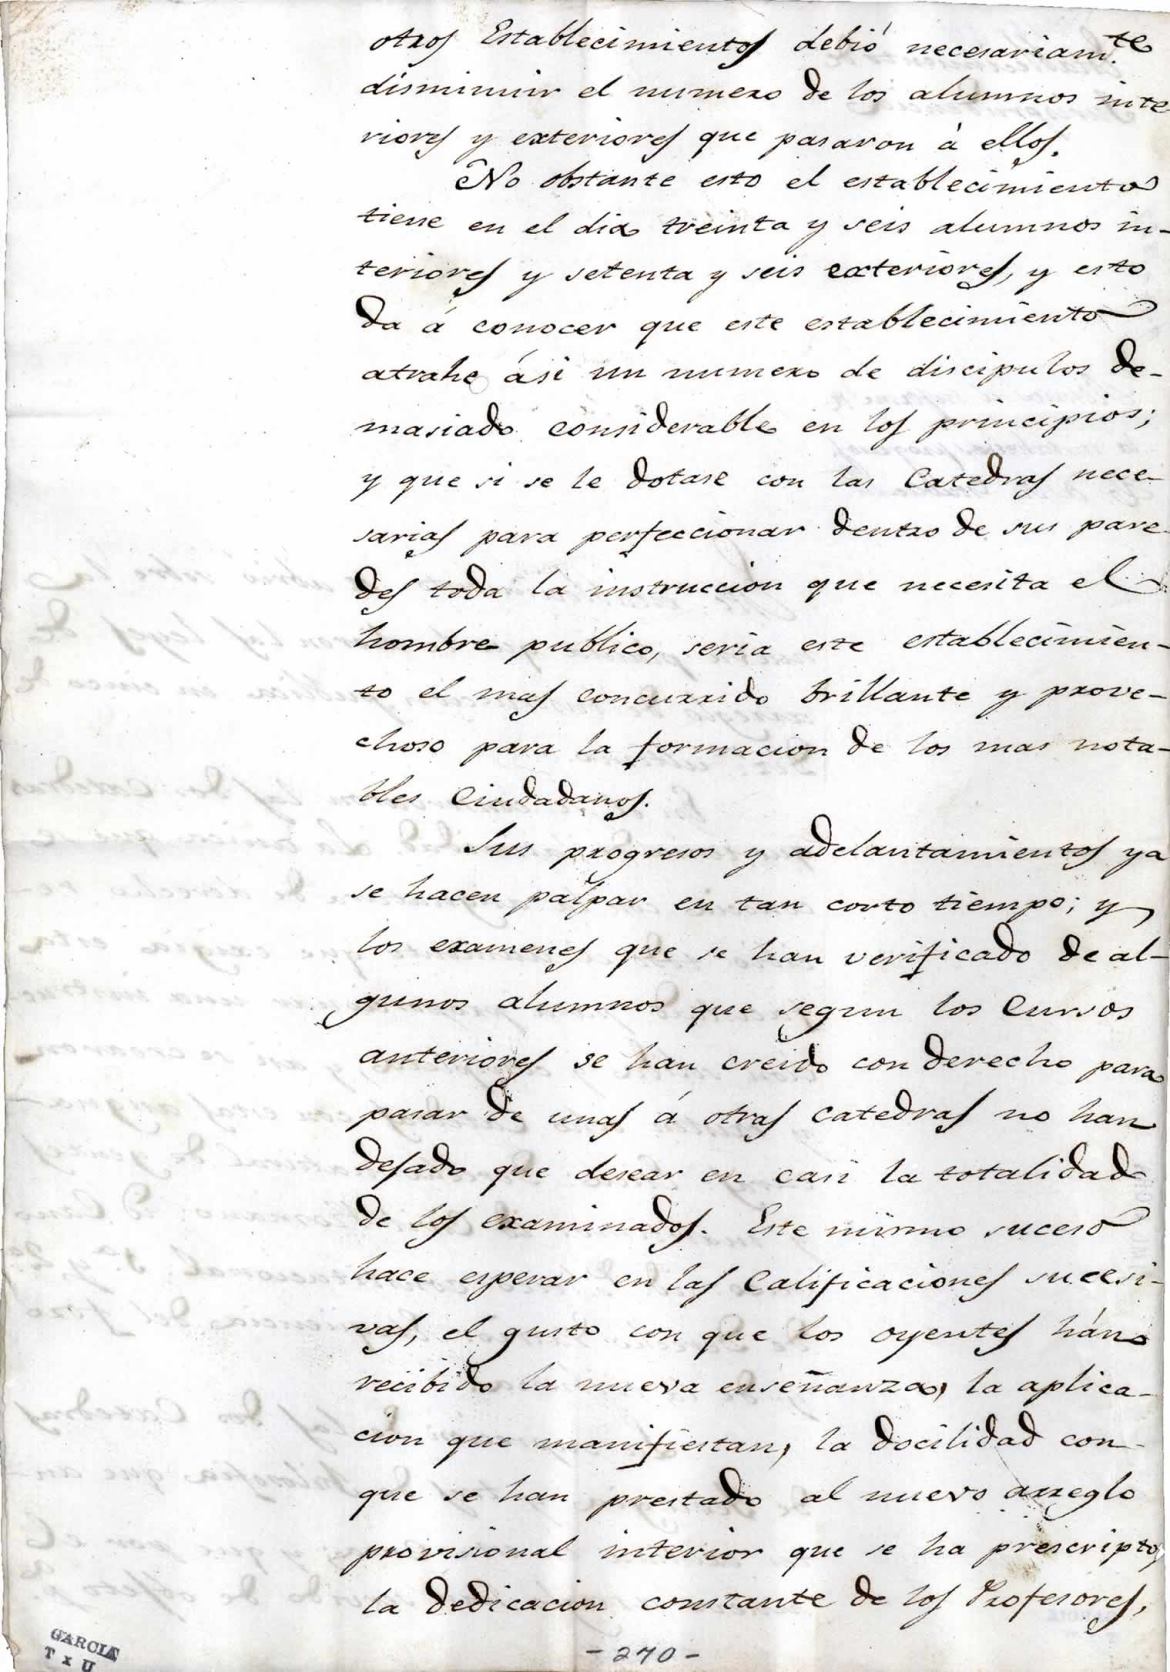 otros Establecimientos debió necesariam.te
disminuir el numero de los alumnos inte
riores y exteriores que pasaron á ellos.
No obstante esto el establecimiento
tiene en el dia treinta y seis alumnos in-
teriores y setenta y seis exteriores, y esto
da á conocer que este establecimiento
atrahe ási un numero de discipulos de-
masiado considerable en los principios;
y que si se le dotase con las Catedras nece-
sarias para perfeccionar dentro de sus pare-
des toda la instruccion que necesita el
hombre publico, seria este establecimien-
to el mas concurrido brillante y prove-
choso para la formacion de los mas nota-
bles Ciudadanos.
Sus progresos y adelantamientos ya
se hacen palpar en tan corto tiempo; y
los examenes que se han verificado de al-
gunos alumnos que segun los Cursos
anteriores se han creido con derecho para
pasar de unas á otras catedras no han
dejado que desear en casi la totalidad
de los examinados. Este mismo suceso
hace esperar en las Calificaciones sucesi-
vas, el gusto con que los oyentes hán
recibido la nueva enseñanza, la aplica-
cion que manifiestan, la docilidad con-
que se han prestado al nuevo arreglo
provisional interior que se ha prescripto,
la dedicacion constante de los Profesores,
-270-
GARCIA
T x U